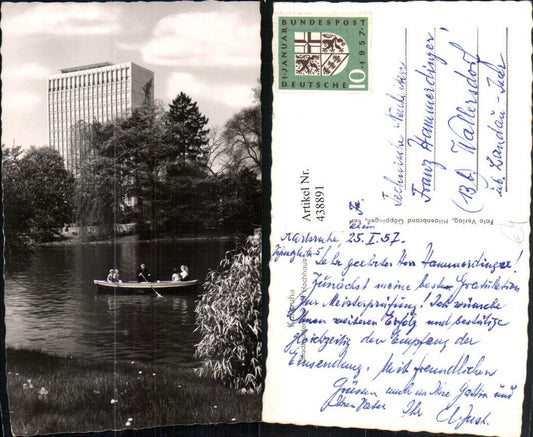 BUNDESPOST
1·JANUAR
1957
DEUTSCHE
10
Artikel Nr.
438891
Foto Verlag, Hildenbrand Göppingen,
Karlsruhe
Hochhaus
Franz Hammerdinger
(13b) Wallersdorf
üb. Landau-Isar
Karlsruhe 25.I.57.
Sehr geehrter Herr Hammerdinger!
Zunächst meine besten Gratulation
zur Meisterprüfung! Ich wünsche
Ihnen weiteren Erfolg und bestätige
gleichzeitig den Empfang der
Einsendung. Mit freundlichen
Grüssen auch an Ihre Gattin und
Ihren Vater Ihr